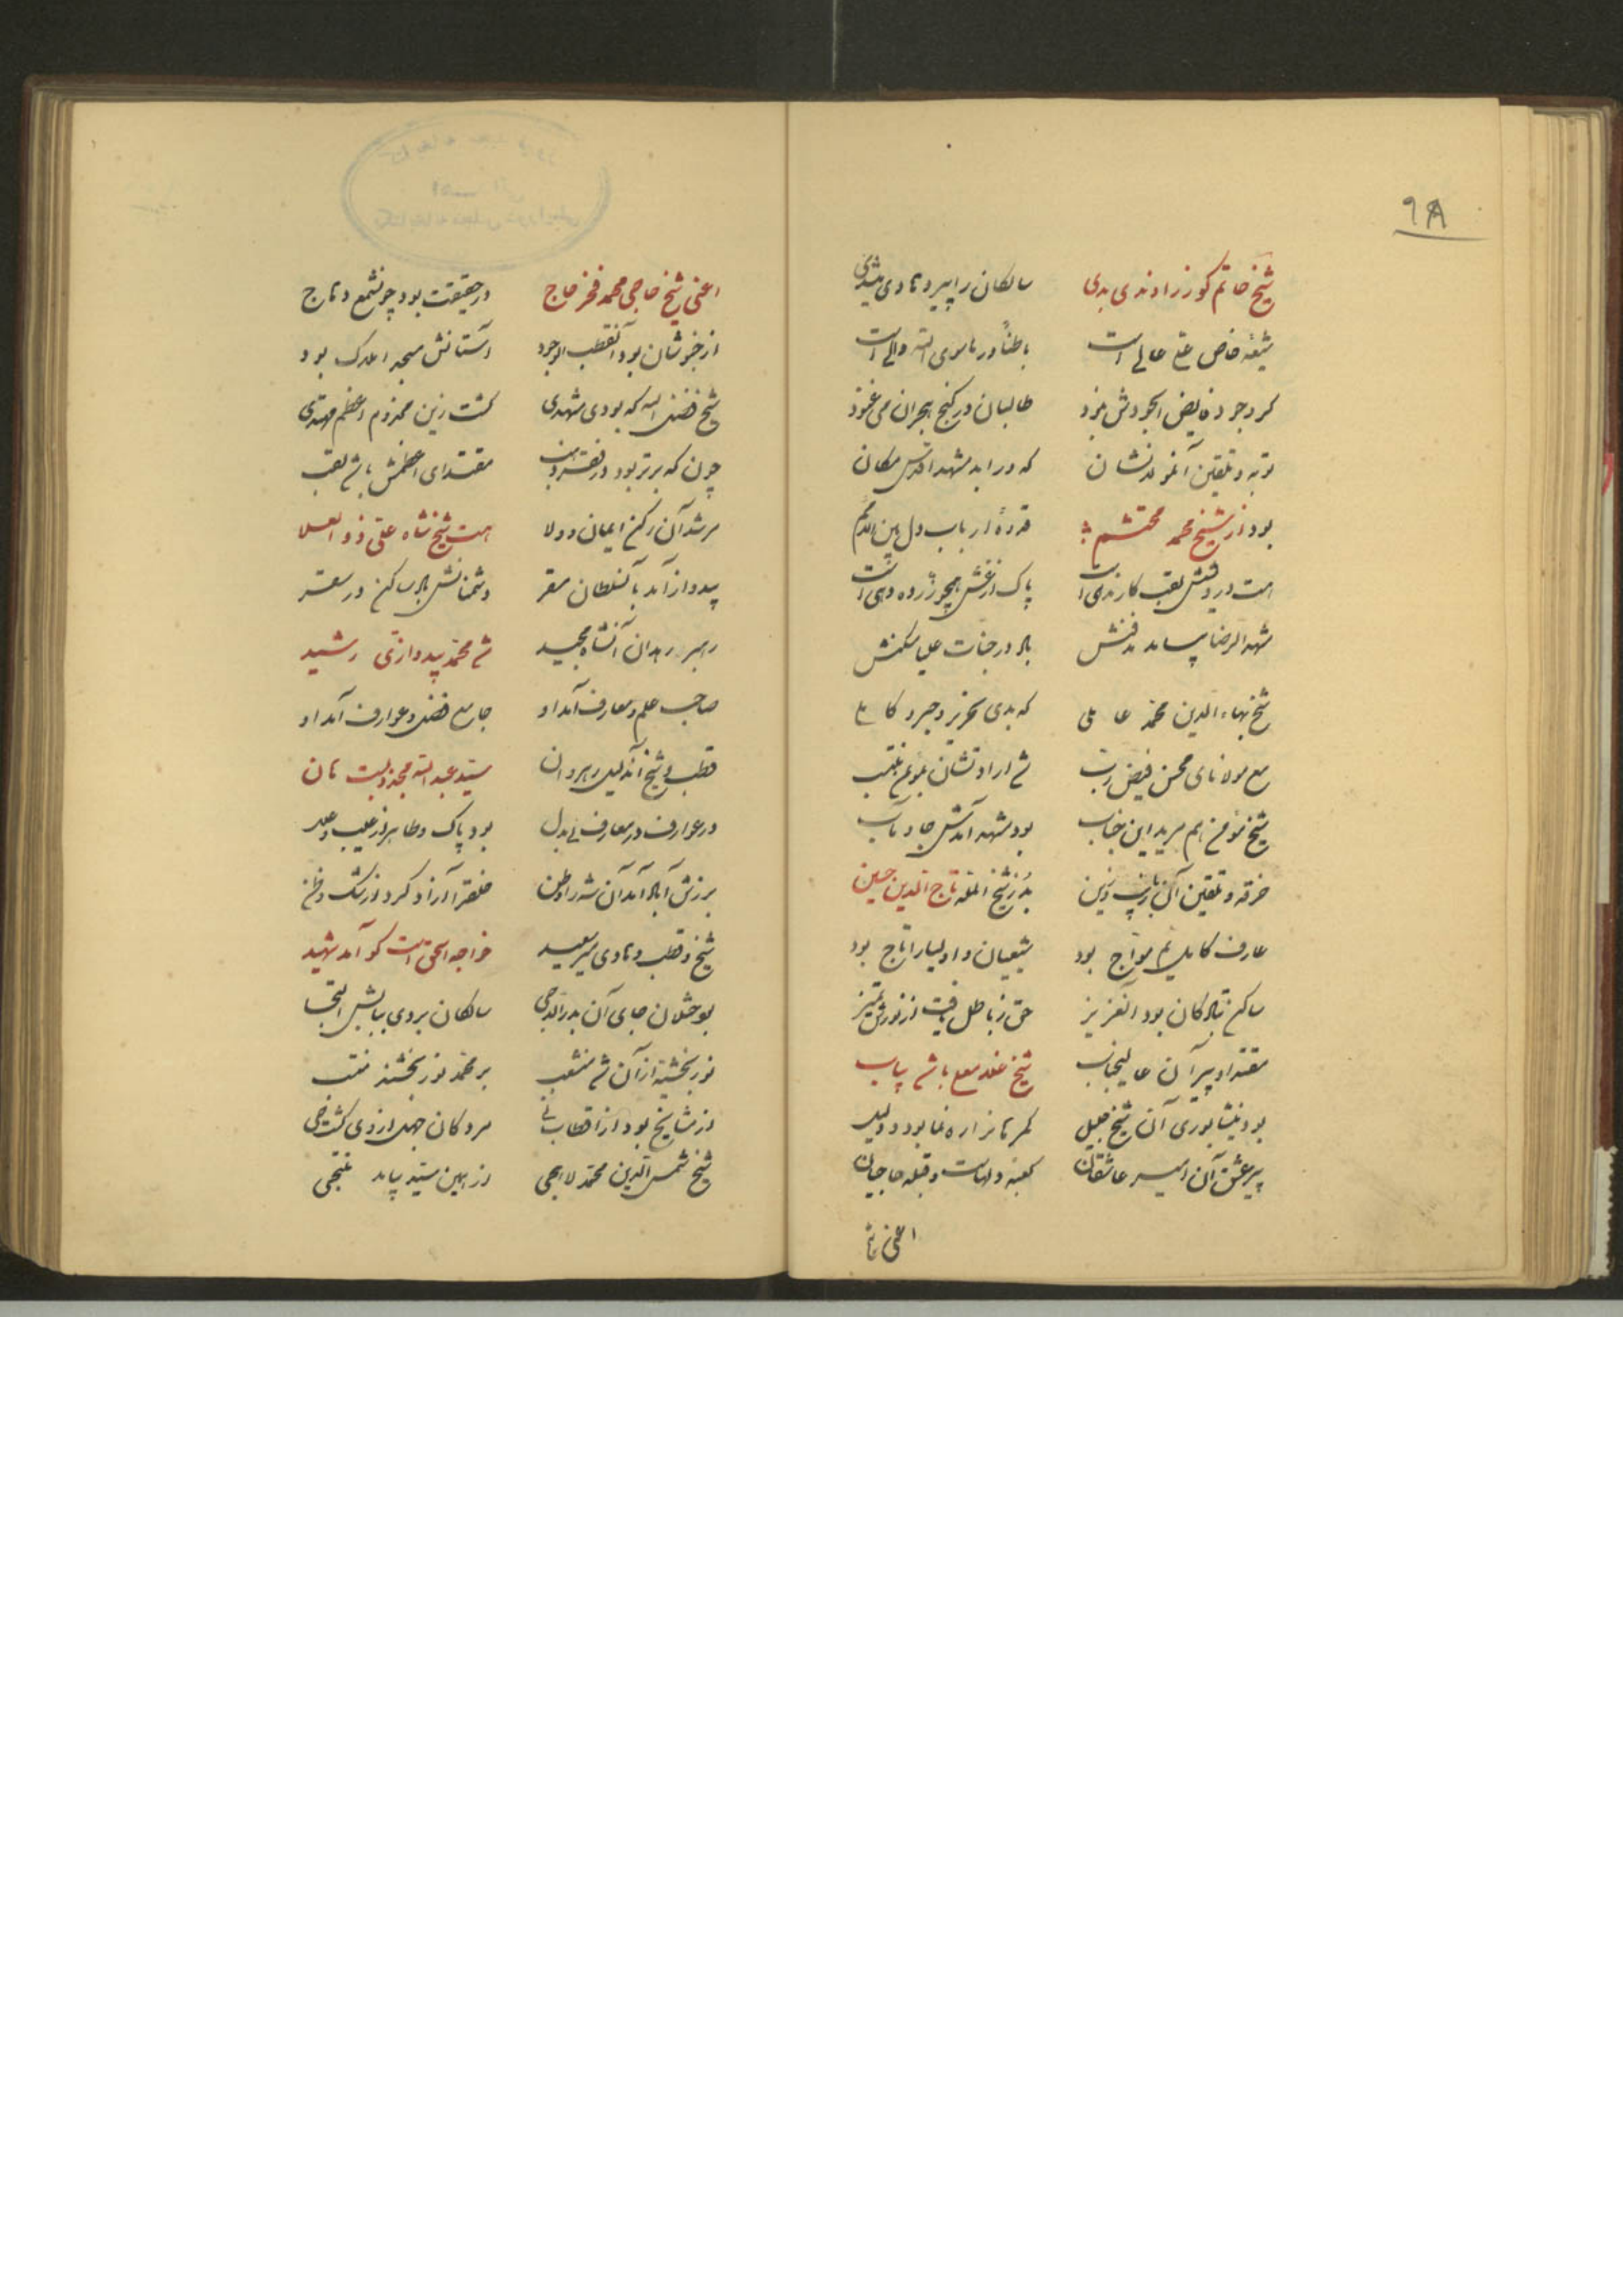 ۹۸
شیخ حاتم کو زراوندی بدی سالکان را پیر و هادی میشدی
شیعهٔ خاص علی عالی است باطناً در ماسوی الله والی است
کرد جرد فایض الجودش طالبان در کنج هجران می غنود
توبه و تلقین آنمولدنشان که در آید مشهد اقدس مکان
بود از شیخ محمد محتشم قدوهٔ ارباب دل
هست درویشش لقب کارندی است پاک از غش همچو زر
مشهد الرضا بیامد مدفنش باد در جنات علیا مسکنش
شیخ بهاء الدین محمد عاملی که بدی نحریر و حبر و کاملی
مع مولانای محسن فیض رب شد ارادتشان
شیخ مؤمن هم مرید این جناب بود مشهد آمدش جا و مآب
خرقه و تلقین آن دین بد ز شیخ تاج الدین حسین
عارف کامل یم مواج بود شیعیان و اولیا را تاج بود
ساکن تبادکان بود آنعزیز حق ز باطل یافت از نورش تمیز
مقتدا و پیر آن عالیجناب شیخ غلامعلی باشد بیاب
بود نیشابوری آن شیخ جلیل گمرهانرا رهنما بود و دلیل
پیر عشق آن امیر عاشقان کعبهٔ دلهاست و قبله حاجیان
اعنی
اعنی شیخ حاجی محمد فخر حاج در حقیقت بود چونشمع وهاج
از خبوشان بود آنقطب الوجود آستانش مسجد املاک بود
شیخ فضل الله که بودی مشهدی گشت زین مخدوم اعظم مهتدی
چون که برتر بود در فقر و مقتدای اعظمش باشد لقب
مرشد آن رکن ایمان و ولا هست شیخ شاه علی ذو العلا
بیدواز آمد بآنسلطان مقر دشمنانش باد ساکن در سقر
رهبر رهدان آنشاه مجید شد محمد بیدوازی رشید
صاحب علم و معارف آمد او جامع فضل و عوارف آمد او
قطب و شیخ آندلیل رهروان سید عبد الله مجذوبست هان
در عوارف در معارف بی بدل بود پاک و طاهر از عیب و علل
برزش آباد آمد آن شه را وطن خلق را آزاد کرد از شک و ظن
شیخ و قطب و هادی میر سعید خواجه اسحق است کو آمد شهید
بوختلان جای آن بدر الدجی سالکان بردی ببابش التجا
نوربخشیه از آن شد منشعب بر محمد نوربخشند منتسب
از مشایخ بود از اقطاب نی مردگان جهل از وی گشت حی
شیخ شمس الدین محمد لاهجی از همین سید بیامد منتجی